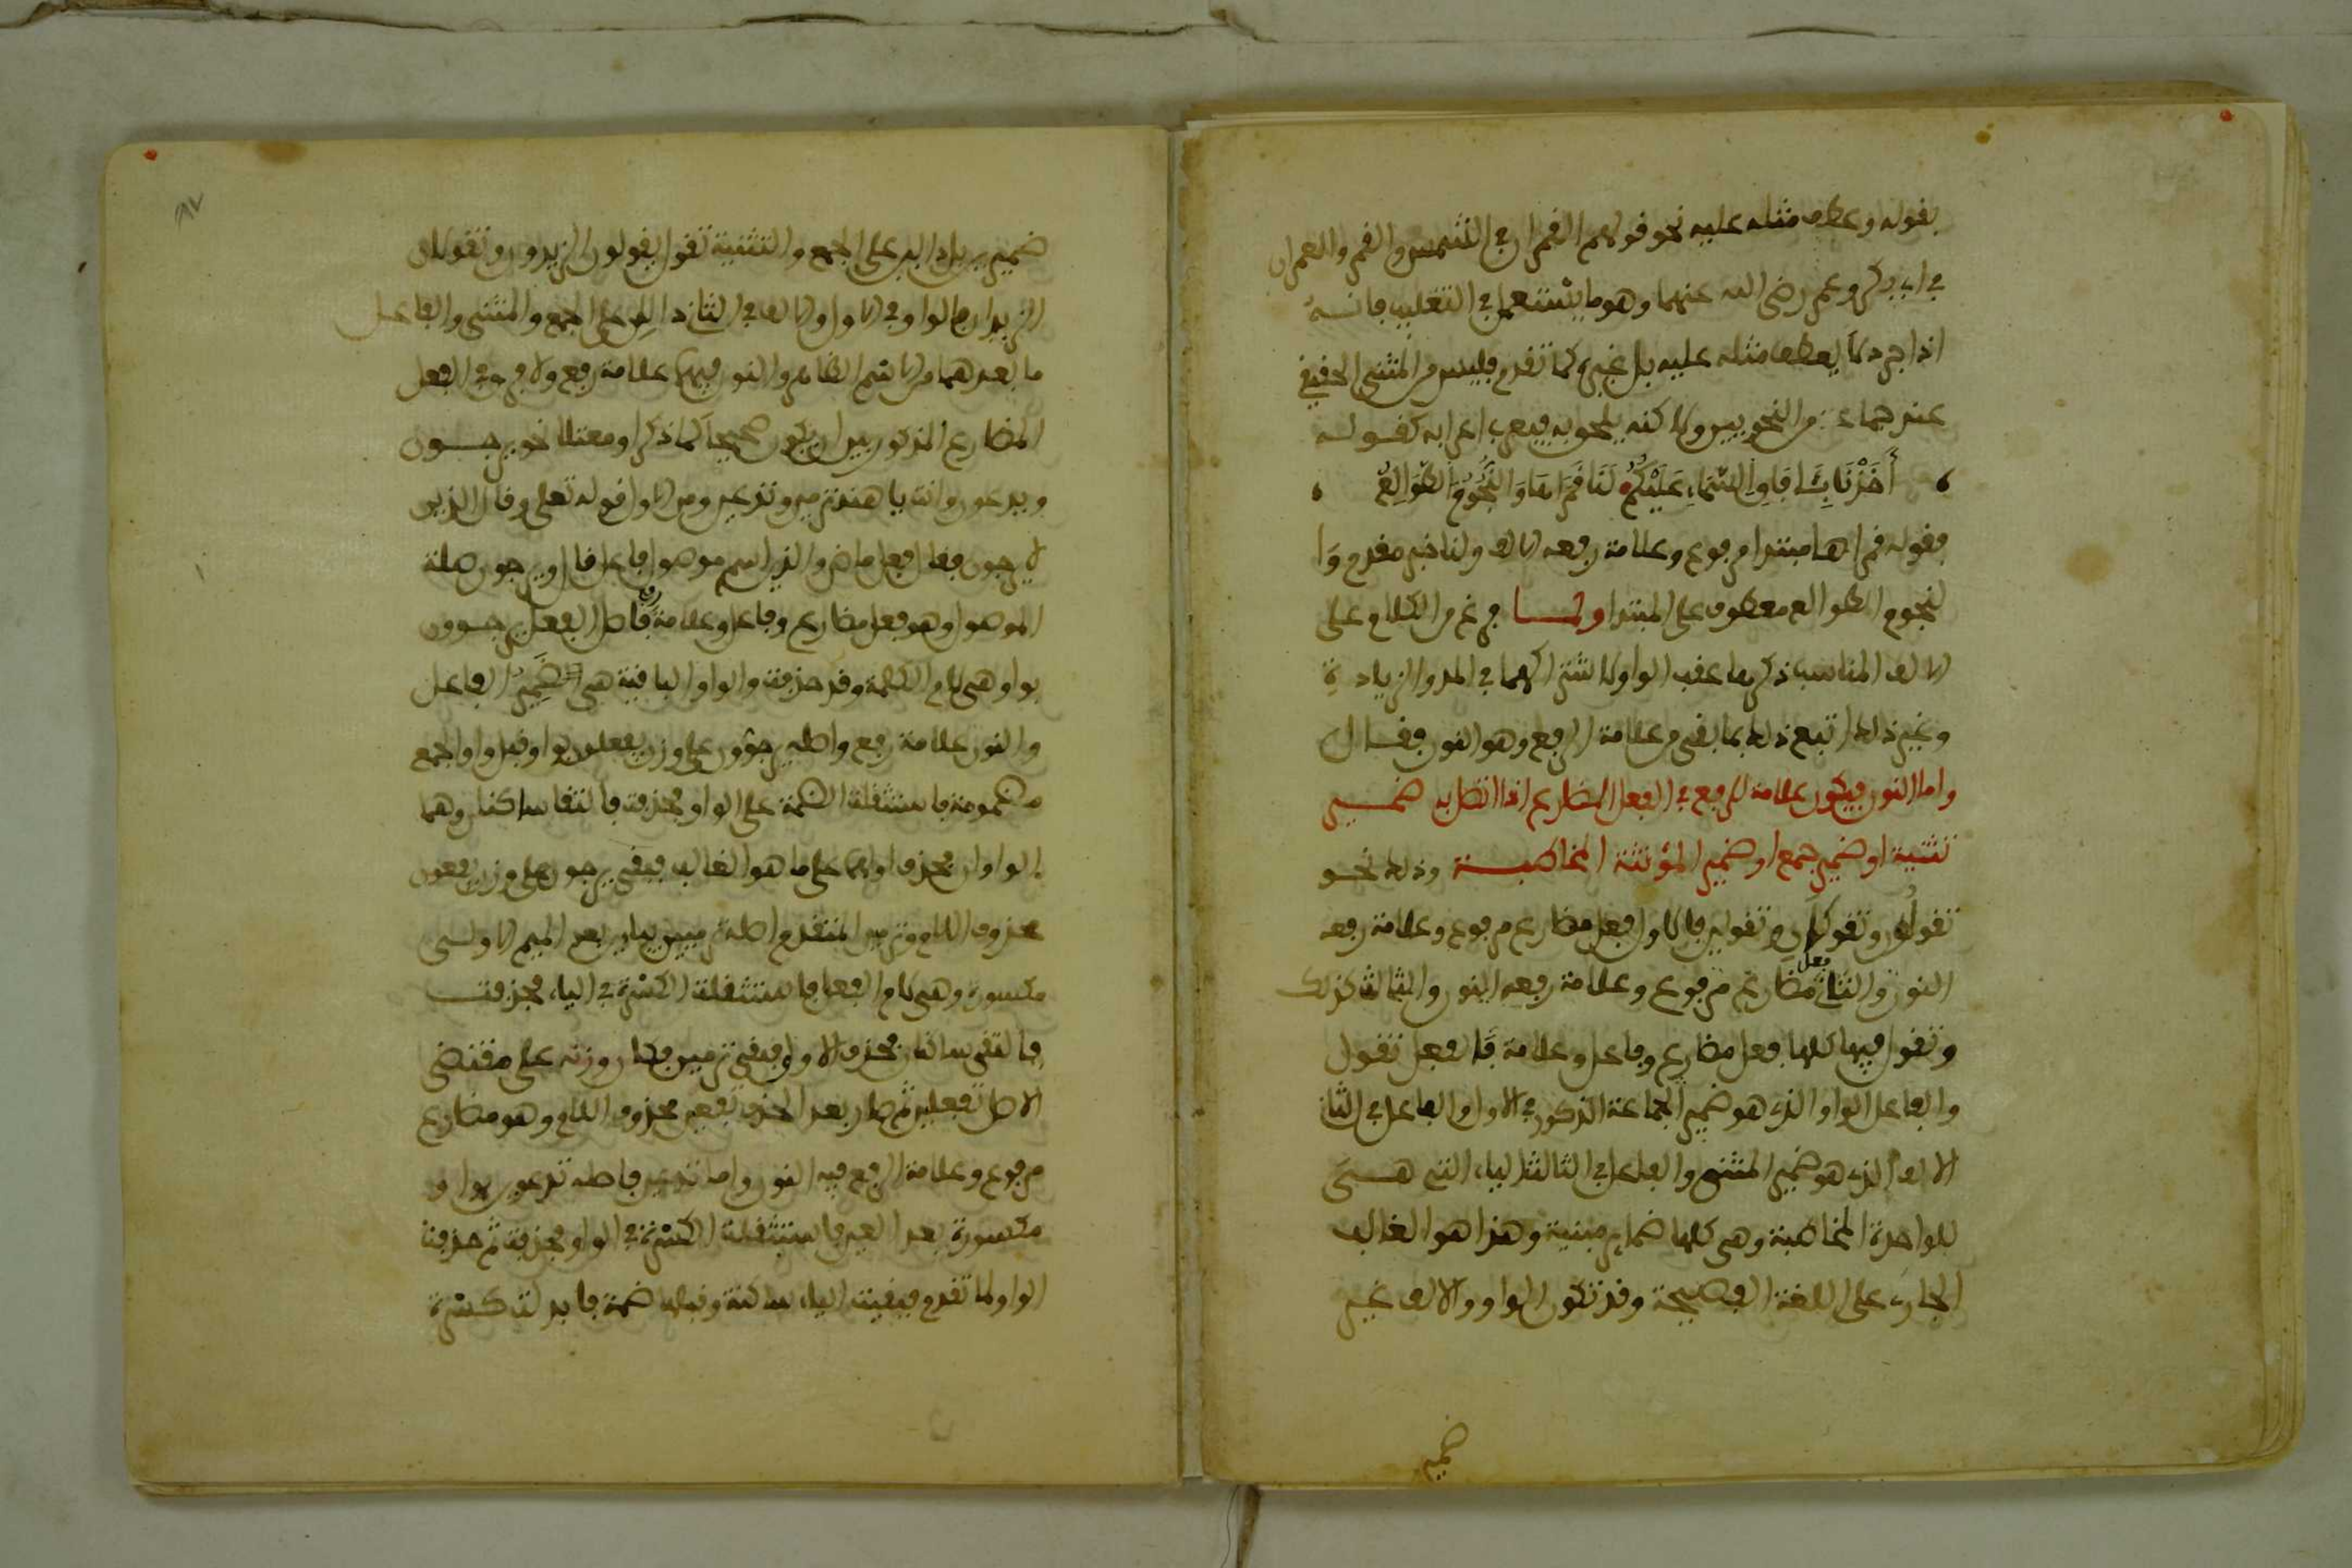 بقوله وعطف مثله عليه نحو قولهم القمران في الشمس والقمر والعمران
في ابي بكر وعمر رضي الله عنهما وهو ما يستعمل في التغليب فانه
اذا جرد لا يعطف مثله عليه بل غيره كما تقدم فليس من المثنى الحقيقي
عند جماعة من النحويين ولاكنه يلحق به فيعرب اعرابه كقوله
أَخَذْنَا بِآفَاقِ السَّمَاءِ عَلَيْكُمُ لَنَا قَمَرَاهَا وَالنُّجُومُ الطَّوَالِعُ
فقوله قمراها مبتدا مرفوع وعلامة رفعه الالف ولنا خبر مقدم وا
لنجوم الطوالع معطوف على المبتدا ولما فرغ من الكلام على
الالف المناسب ذكرها عقب الواو لاشتراكهما في المد والزيادة
وغير ذلك اتبع ذلك بما بقي من علامة الرفع وهو النون فقال
واما النون فيكون علامة للرفع في الفعل المضارع اذا اتصل به ضمير
تثنية او ضمير جمع او ضمير المؤنثة المخاطبة وذلك نحو
تقولون وتقولان وتقولين فالاول فعل مضارع مرفوع وعلامة رفعه
النون والثاني فعل مضارع مرفوع وعلامة رفعه النون والثالث كذلك
وتقول فيها كلها فعل مضارع وفاعل وعلامة فالفعل تقول
والفاعل الواو الذي هو ضمير الجماعة الذكور في الاول والفاعل في الثاني
الالف الذي هو ضمير المثنى والفاعل في الثالث الياء التي هي
للواحدة المخاطبة وهي كلها ضماير مبنية وهذا هو الغالب
الجاري على اللغة الفصيحة وقد تكون الواو والالف غير
ضمير
ضمير بل دالين على الجمع والتثنية تقول يقولون الزيدون وتقولان
الزيدان فالواو في الاول والالف في الثاني دالين على الجمع والمثنى والفاعل
ما بعدهما من الاسم الظاهر والنون فيهما علامة رفع ولا فرق في الفعل
المضارع المذكور بين ان يكون صحيحا كما ذكر او معتلا نحو يرجون
ويدعون وانت يا هند ترمين وتدعين ومن الاول قوله تعلى وقال الذين
لا يرجون فقال فعل ماض والذين اسم موصول فاعل قال ويرجون صلة
الموصول وهو فعل مضارع وفاعل وعلامة رفع فاصل الفعل يرجوون
بواو هي لام الكلمة وقد حذفت والواو الباقية هي الضمير الفاعل
والنون علامة رفع واصله يرجوون على وزن يفعلون بواو قبل واو الجمع
مضمومة فاستثقلت الضمة على الواو فحذفت فالتقا ساكنان وهما
الواوان فحذف اولهما على ما هو الغالب فبقي يرجون على وزن يفعون
محذوف اللام وترمين المتقدم اصله ترميين بيايين بعد الميم الاولى
مكسورة وهي لام الفعل فاستثقلت الكسرة في الياء فحذفت
فالتقى ساكنان فحذف الاول فبقي ترمين فكان وزنه على مقتضى
الاصل تفعلين ثم صار بعد الحذف تفعين محذوف اللام وهو مضارع
مرفوع وعلامة الرفع فيه النون واما تدعين فاصله تدعوين بواو
مكسورة بعد العين فاستثقلت الكسرة في الواو فحذفت ثم حذفت
الواو لما تقدم فبقيت الياء ساكنة وقبلها ضمة فابدلت كسرة